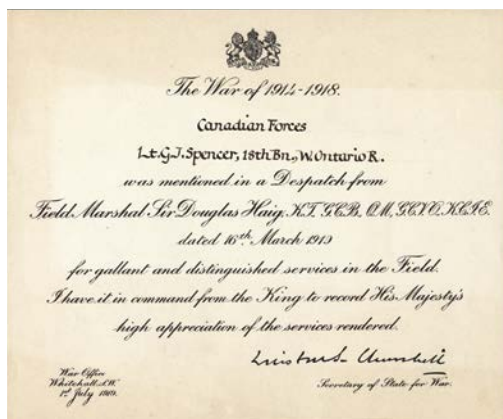 The War of 1914-1918.
Canadian Forces
Lt. G.J. Spencer, 18th Bn., W. Ontario R.
was mentioned in a Despatch from
Field Marshal Sir Douglas Haig, K.T. G.C.B., O.M., G.C.V.O., K.C.I.E.
dated 16th March 1919
for gallant and distinguished services in the Field.
I have it in command from the King to record His Majesty's
high appreciation of the services rendered.
Winston S. Churchill
War Office
Whitehall. S.W.
1st July 1919.
Secretary of State for War.